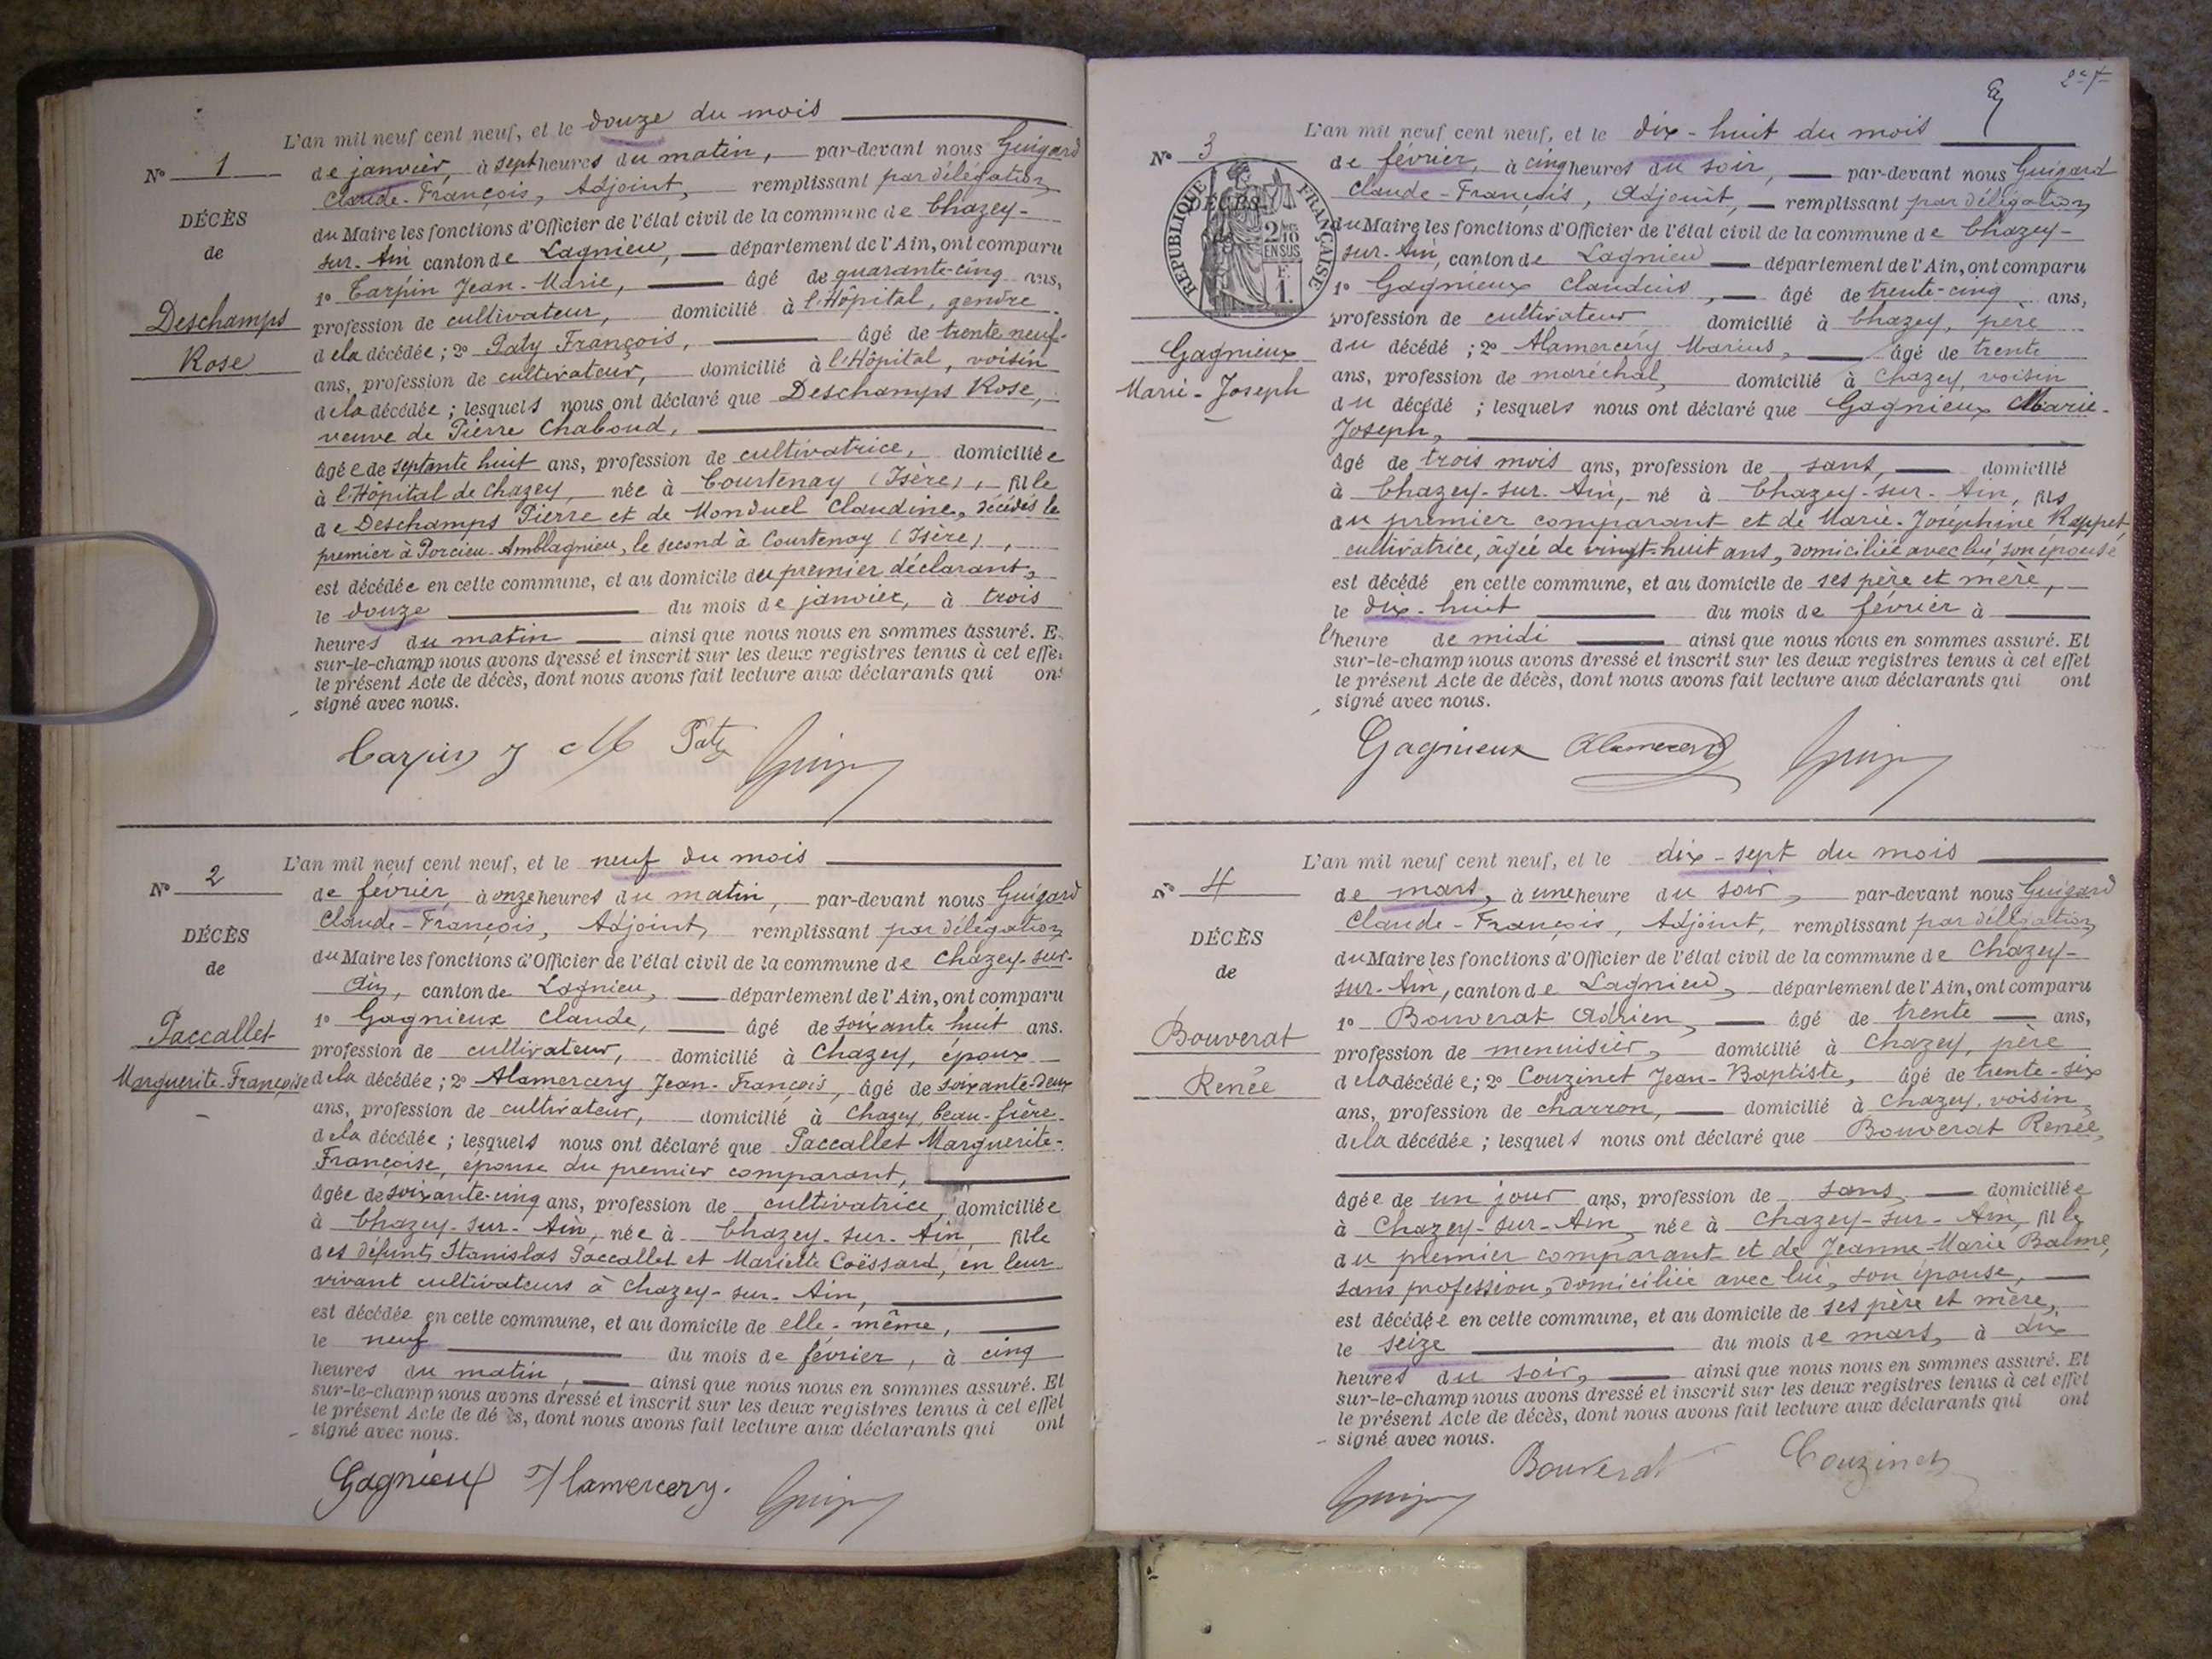 L'an mil neuf cent neuf, et le douze du mois
N° 1
de janvier, à sept heures du matin, par-devant nous Guigard
Claude-François, Adjoint, remplissant par délégation
DÉCÈS
du Maire les fonctions d'Officier de l'état civil de la commune de Chazey-
de
sur-Ain canton de Lagnieu, département de l'Ain, ont comparu
1° Tarpin Jean-Marie, âgé de quarante-cinq ans,
Deschamps
profession de cultivateur, domicilié à l'Hôpital, gendre
Rose
de la décédée ; 2° Paty François, âgé de trente neuf
ans, profession de cultivateur, domicilié à l'Hôpital, voisin
de la décédée ; lesquels nous ont déclaré que Deschamps Rose,
veuve de Pierre Chaboud,
âgée de septante huit ans, profession de cultivatrice, domiciliée
à l'Hôpital de Chazey, née à Courtenay (Isère), fille
de Deschamps Pierre et de Monduel Claudine, décédés le
premier à Porcieu-Amblagnieu, le second à Courtenay (Isère),
est décédée en cette commune, et au domicile du premier déclarant,
le douze du mois de janvier, à trois
heures du matin ainsi que nous nous en sommes assuré. E
sur-le-champ nous avons dressé et inscrit sur les deux registres tenus à cet effe
le présent Acte de décès, dont nous avons fait lecture aux déclarants qui ont
signé avec nous.
Tarpin J M Paty
L'an mil neuf cent neuf, et le neuf du mois
N° 2
de février, à onze heures du matin, par-devant nous Guigard
Claude-François, Adjoint, remplissant par délégation
DÉCÈS
du Maire les fonctions d'Officier de l'état civil de la commune de Chazey-sur-
de
Ain, canton de Lagnieu, département de l'Ain, ont comparu
1° Gagnieux Claude, âgé de soixante huit ans.
Paccallet
profession de cultivateur, domicilié à Chazey, époux
Marguerite-Françoise
de la décédée ; 2° Alamercery Jean-François, âgé de soixante-deux
ans, profession de cultivateur, domicilié à Chazey, beau-frère
de la décédée ; lesquels nous ont déclaré que Paccallet Marguerite-
Françoise, épouse du premier comparant,
âgée de soixante-cinq ans, profession de cultivatrice, domiciliée
à Chazey-sur-Ain, née à Chazey-sur-Ain, fille
des défunts Stanislas Paccallet et Mariette Coëssard, en leur
vivant cultivateurs à Chazey-sur-Ain,
est décédée en cette commune, et au domicile de elle-même,
le neuf du mois de février, à cinq
heures du matin, ainsi que nous nous en sommes assuré. Et
sur-le-champ nous avons dressé et inscrit sur les deux registres tenus à cet effet
le présent Acte de décès, dont nous avons fait lecture aux déclarants qui ont
signé avec nous.
Gagnieux Alamercery.
L'an mil neuf cent neuf, et le dix-huit du mois
N° 3
de février, à cinq heures du soir, par-devant nous Guigard
Claude-François, Adjoint, remplissant par délégation
RÉPUBLIQUE FRANÇAISE
DÉCÈS
2/10 EN SUS
F. 1.
du Maire les fonctions d'Officier de l'état civil de la commune de Chazey-
sur-Ain, canton de Lagnieu département de l'Ain, ont comparu
1° Gagnieux Claudius, âgé de trente-cinq ans,
profession de cultivateur domicilié à Chazey, père
Gagnieux
du décédé ; 2° Alamercery Marius, âgé de trente
Marie-Joseph
ans, profession de maréchal, domicilié à Chazey, voisin
du décédé ; lesquels nous ont déclaré que Gagnieux Marie-
Joseph,
âgé de trois mois ans, profession de sans, domicilié
à Chazey-sur-Ain, né à Chazey-sur-Ain, fils
du premier comparant et de Marie-Joséphine Rappet,
cultivatrice, âgée de vingt-huit ans, domiciliée avec lui, son épouse
est décédé en cette commune, et au domicile de ses père et mère,
le dix-huit du mois de février à
l'heure de midi ainsi que nous nous en sommes assuré. Et
sur-le-champ nous avons dressé et inscrit sur les deux registres tenus à cet effet
le présent Acte de décès, dont nous avons fait lecture aux déclarants qui ont
signé avec nous.
Gagnieux Alamercery
L'an mil neuf cent neuf, et le dix-sept du mois
N° 4
de mars, à une heure du soir, par-devant nous Guigard
Claude-François, Adjoint, remplissant par délégation
DÉCÈS
du Maire les fonctions d'Officier de l'état civil de la commune de Chazey-
de
sur-Ain, canton de Lagnieu, département de l'Ain, ont comparu
1° Bouverat Adrien, âgé de trente ans,
Bouverat
profession de menuisier, domicilié à Chazey, père
Renée
de la décédée ; 2° Couzinet Jean-Baptiste, âgé de trente-six
ans, profession de charron, domicilié à Chazey, voisin
de la décédée ; lesquels nous ont déclaré que Bouverat Renée,
âgée de un jour ans, profession de sans, domiciliée
à Chazey-sur-Ain, née à Chazey-sur-Ain, fille
du premier comparant et de Jeanne-Marie Balme,
sans profession, domiciliée avec lui, son épouse,
est décédée en cette commune, et au domicile de ses père et mère,
le seize du mois de mars, à dix
heures du soir, ainsi que nous nous en sommes assuré. Et
sur-le-champ nous avons dressé et inscrit sur les deux registres tenus à cet effet
le présent Acte de décès, dont nous avons fait lecture aux déclarants qui ont
signé avec nous.
Bouverat Couzinet